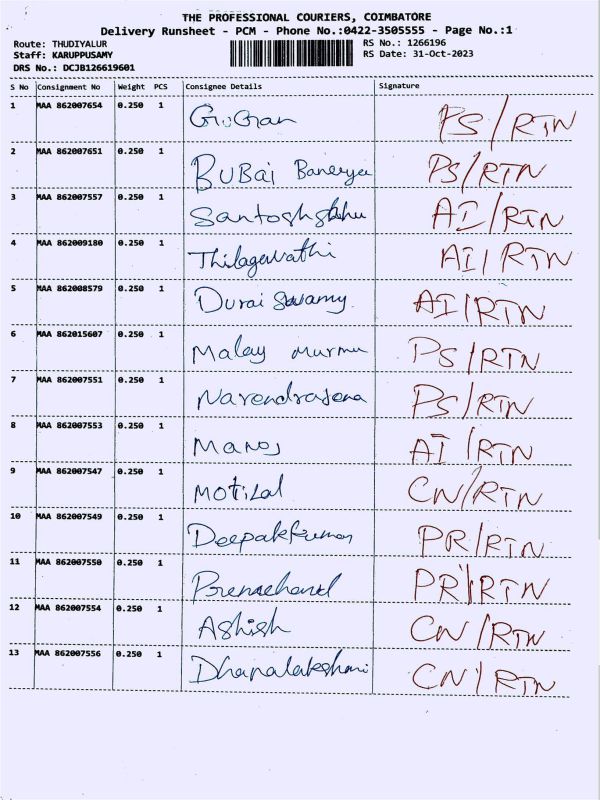 THE PROFESSIONAL COURIERS, COIMBATORE
Delivery Runsheet - PCM - Phone No.:0422-3505555 - Page No.:1
Route: THUDIYALUR RS No.: 1266196
Staff: KARUPPUSAMY RS Date: 31-Oct-2023
DRS No.: DCJB126619601
S No Consignment No Weight PCS Consignee Details Signature
1 MAA 862007654 0.250 1 PS/RTN
2 MAA 862007651 0.250 1 BUBai Banerjee PS/RTN
3 MAA 862007557 0.250 1 Santosh AI/RTN
4 MAA 862009180 0.250 1 Thilagavathi AI/RTN
5 MAA 862008579 0.250 1 Durai Swamy AI/RTN
6 MAA 862015607 0.250 1 Malay Murmu PS/RTN
7 MAA 862007551 0.250 1 Narendrajena PS/RTN
8 MAA 862007553 0.250 1 Manoj AI/RTN
9 MAA 862007547 0.250 1 MotiLal CN/RTN
10 MAA 862007549 0.250 1 Deepakkumar PR/RTN
11 MAA 862007550 0.250 1 Premchand PR/RTN
12 MAA 862007554 0.250 1 Ashish CN/RTN
13 MAA 862007556 0.250 1 Dhanalakshmi CN/RTN